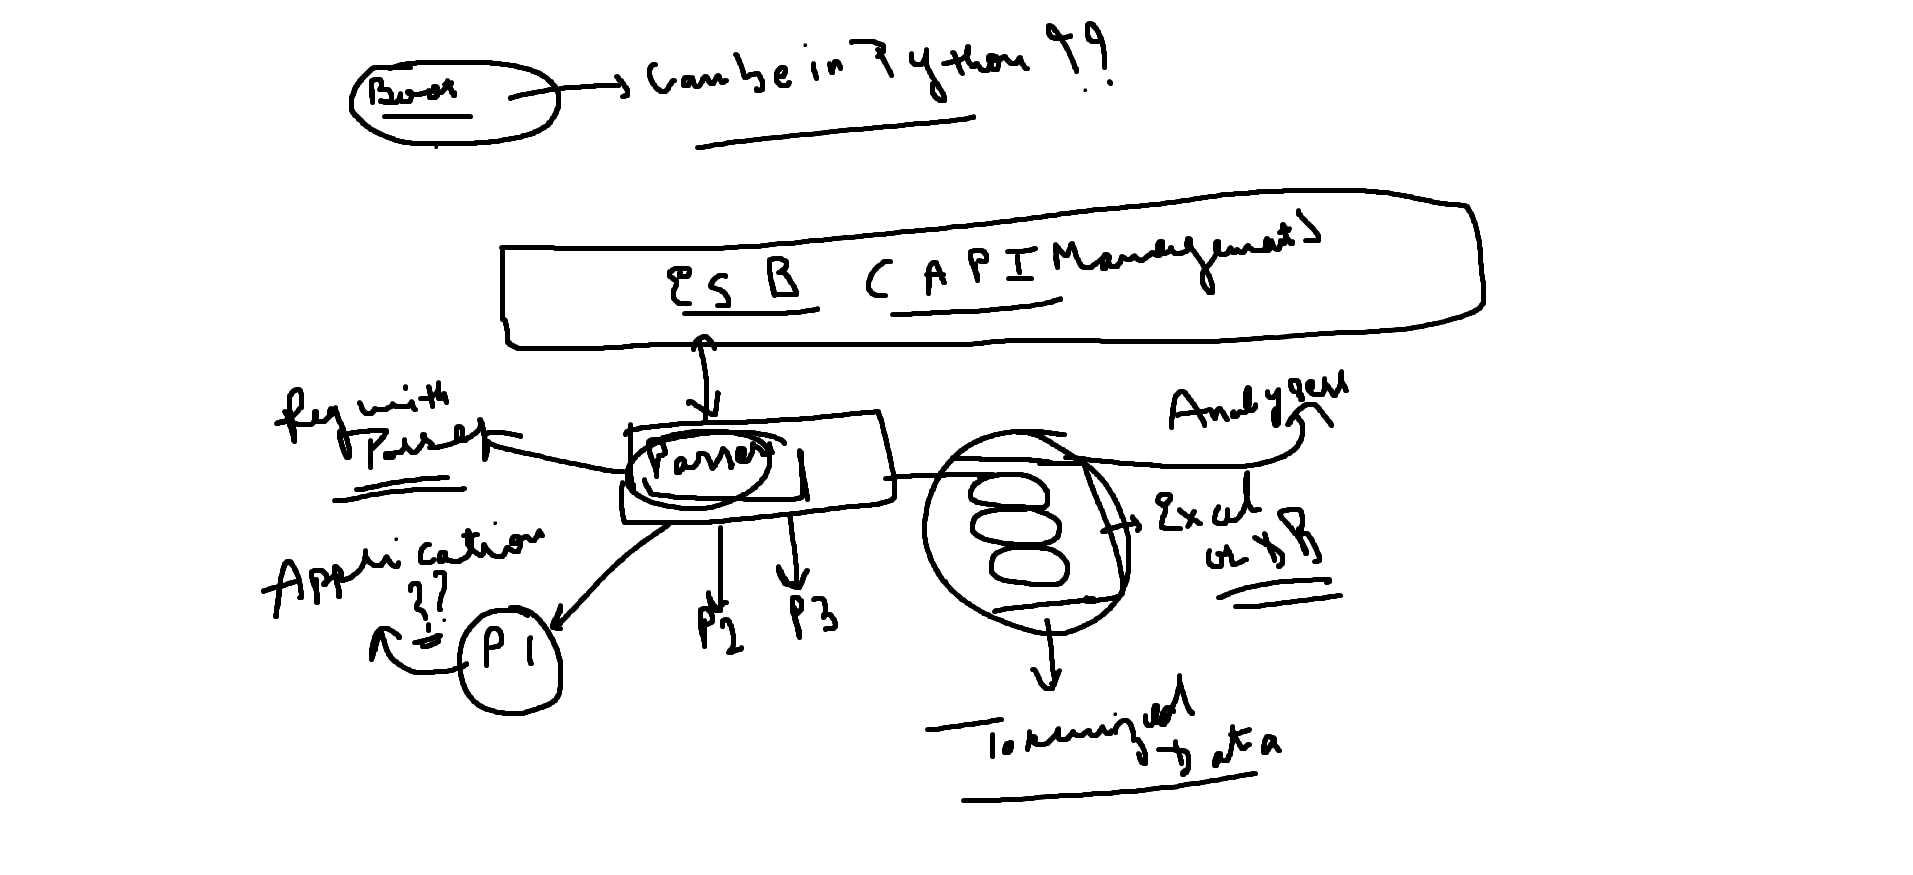 Boot
Can be in Python ??
ESB (API Management)
Req with
Parser
Parser
Analyzer
Excel
or DB
Application
??
P1
P2
P3
Tokenized
Data